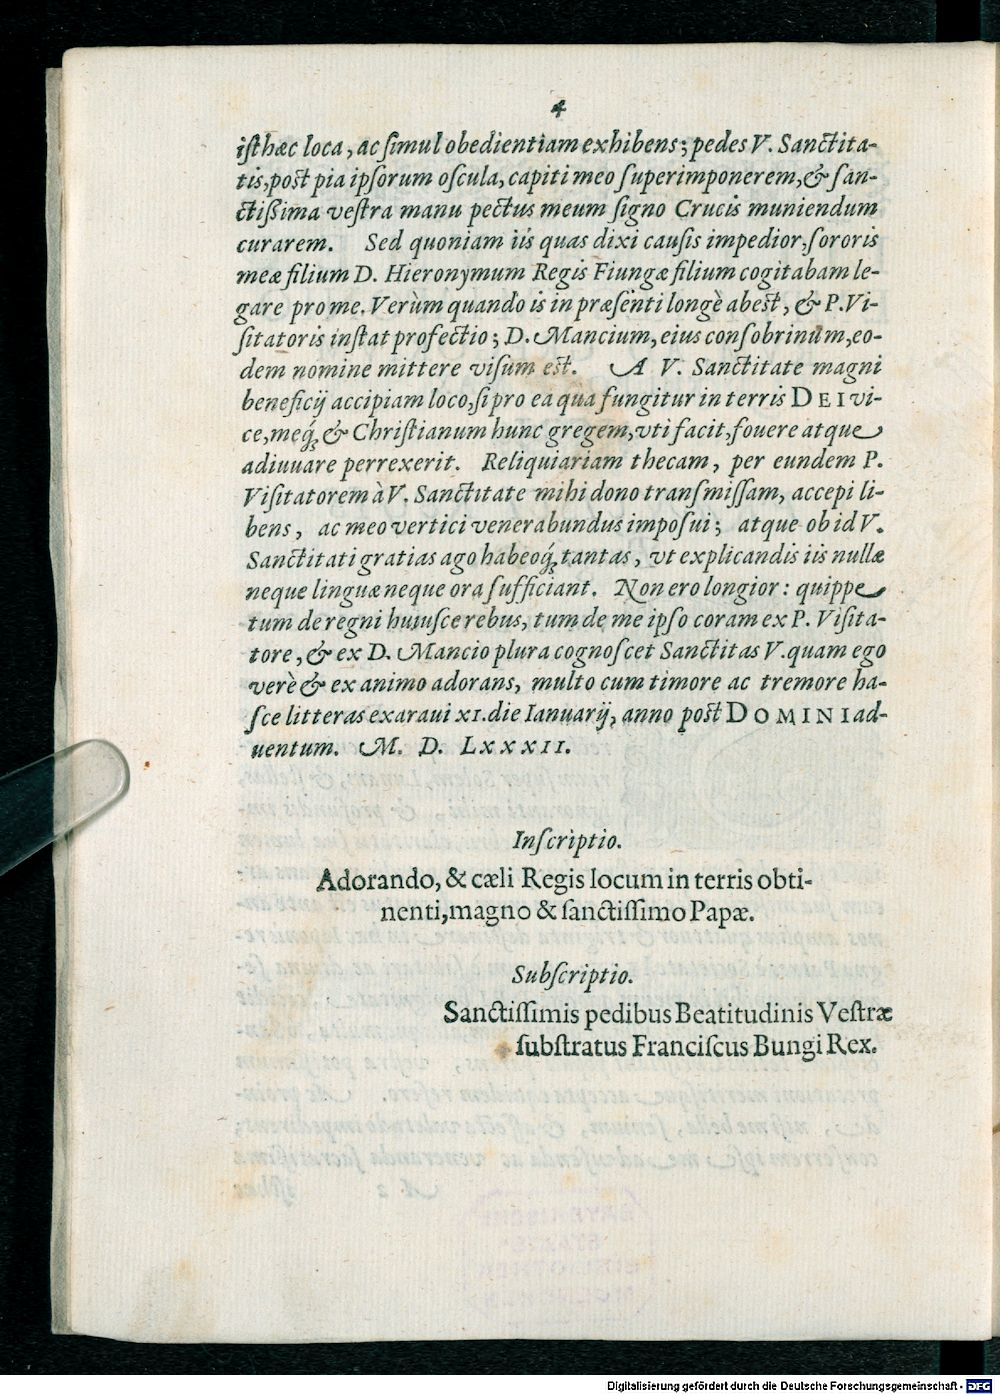 4
iſthæc loca, ac ſimul obedientiam exhibens; pedes V. Sanctita-
tis, poſt pia ipſorum oſcula, capiti meo ſuperimponerem, & ſan-
ctißima veſtra manu pectus meum ſigno Crucis muniendum
curarem. Sed quoniam iis quas dixi cauſis impedior, ſororis
meæ filium D. Hieronymum Regis Fiungæ filium cogitabam le-
gare pro me. Verùm quando is in præſenti longè abeſt, & P. Vi-
ſitatoris inſtat profectio; D. Mancium, eius conſobrinum, eo-
dem nomine mittere viſum eſt. A V. Sanctitate magni
beneficij accipiam loco, ſi pro ea qua fungitur in terris DEI vi-
ce, meq́; & Chriſtianum hunc gregem, vti facit, fouere atque
adiuuare perrexerit. Reliquiariam thecam, per eundem P.
Viſitatorem à V. Sanctitate mihi dono tranſmiſſam, accepi li-
bens, ac meo vertici venerabundus impoſui; atque ob id V.
Sanctitati gratias ago habeoq́; tantas, vt explicandis iis nullæ
neque linguæ neque ora ſufficiant. Non ero longior: quippe
tum de regni huiuſce rebus, tum de me ipſo coram ex P. Viſita-
tore, & ex D. Mancio plura cognoſcet Sanctitas V. quam ego
verè & ex animo adorans, multo cum timore ac tremore ha-
ſce litteras exaraui XI. die Ianuarij, anno poſt DOMINI ad-
uentum. M. D. LXXXII.
Inſcriptio.
Adorando, & cæli Regis locum in terris obti-
nenti, magno & ſanctiſſimo Papæ.
Subſcriptio.
Sanctiſſimis pedibus Beatitudinis Veſtræ
ſubſtratus Franciſcus Bungi Rex.
Digitalisierung gefördert durch die Deutsche Forschungsgemeinschaft - DFG